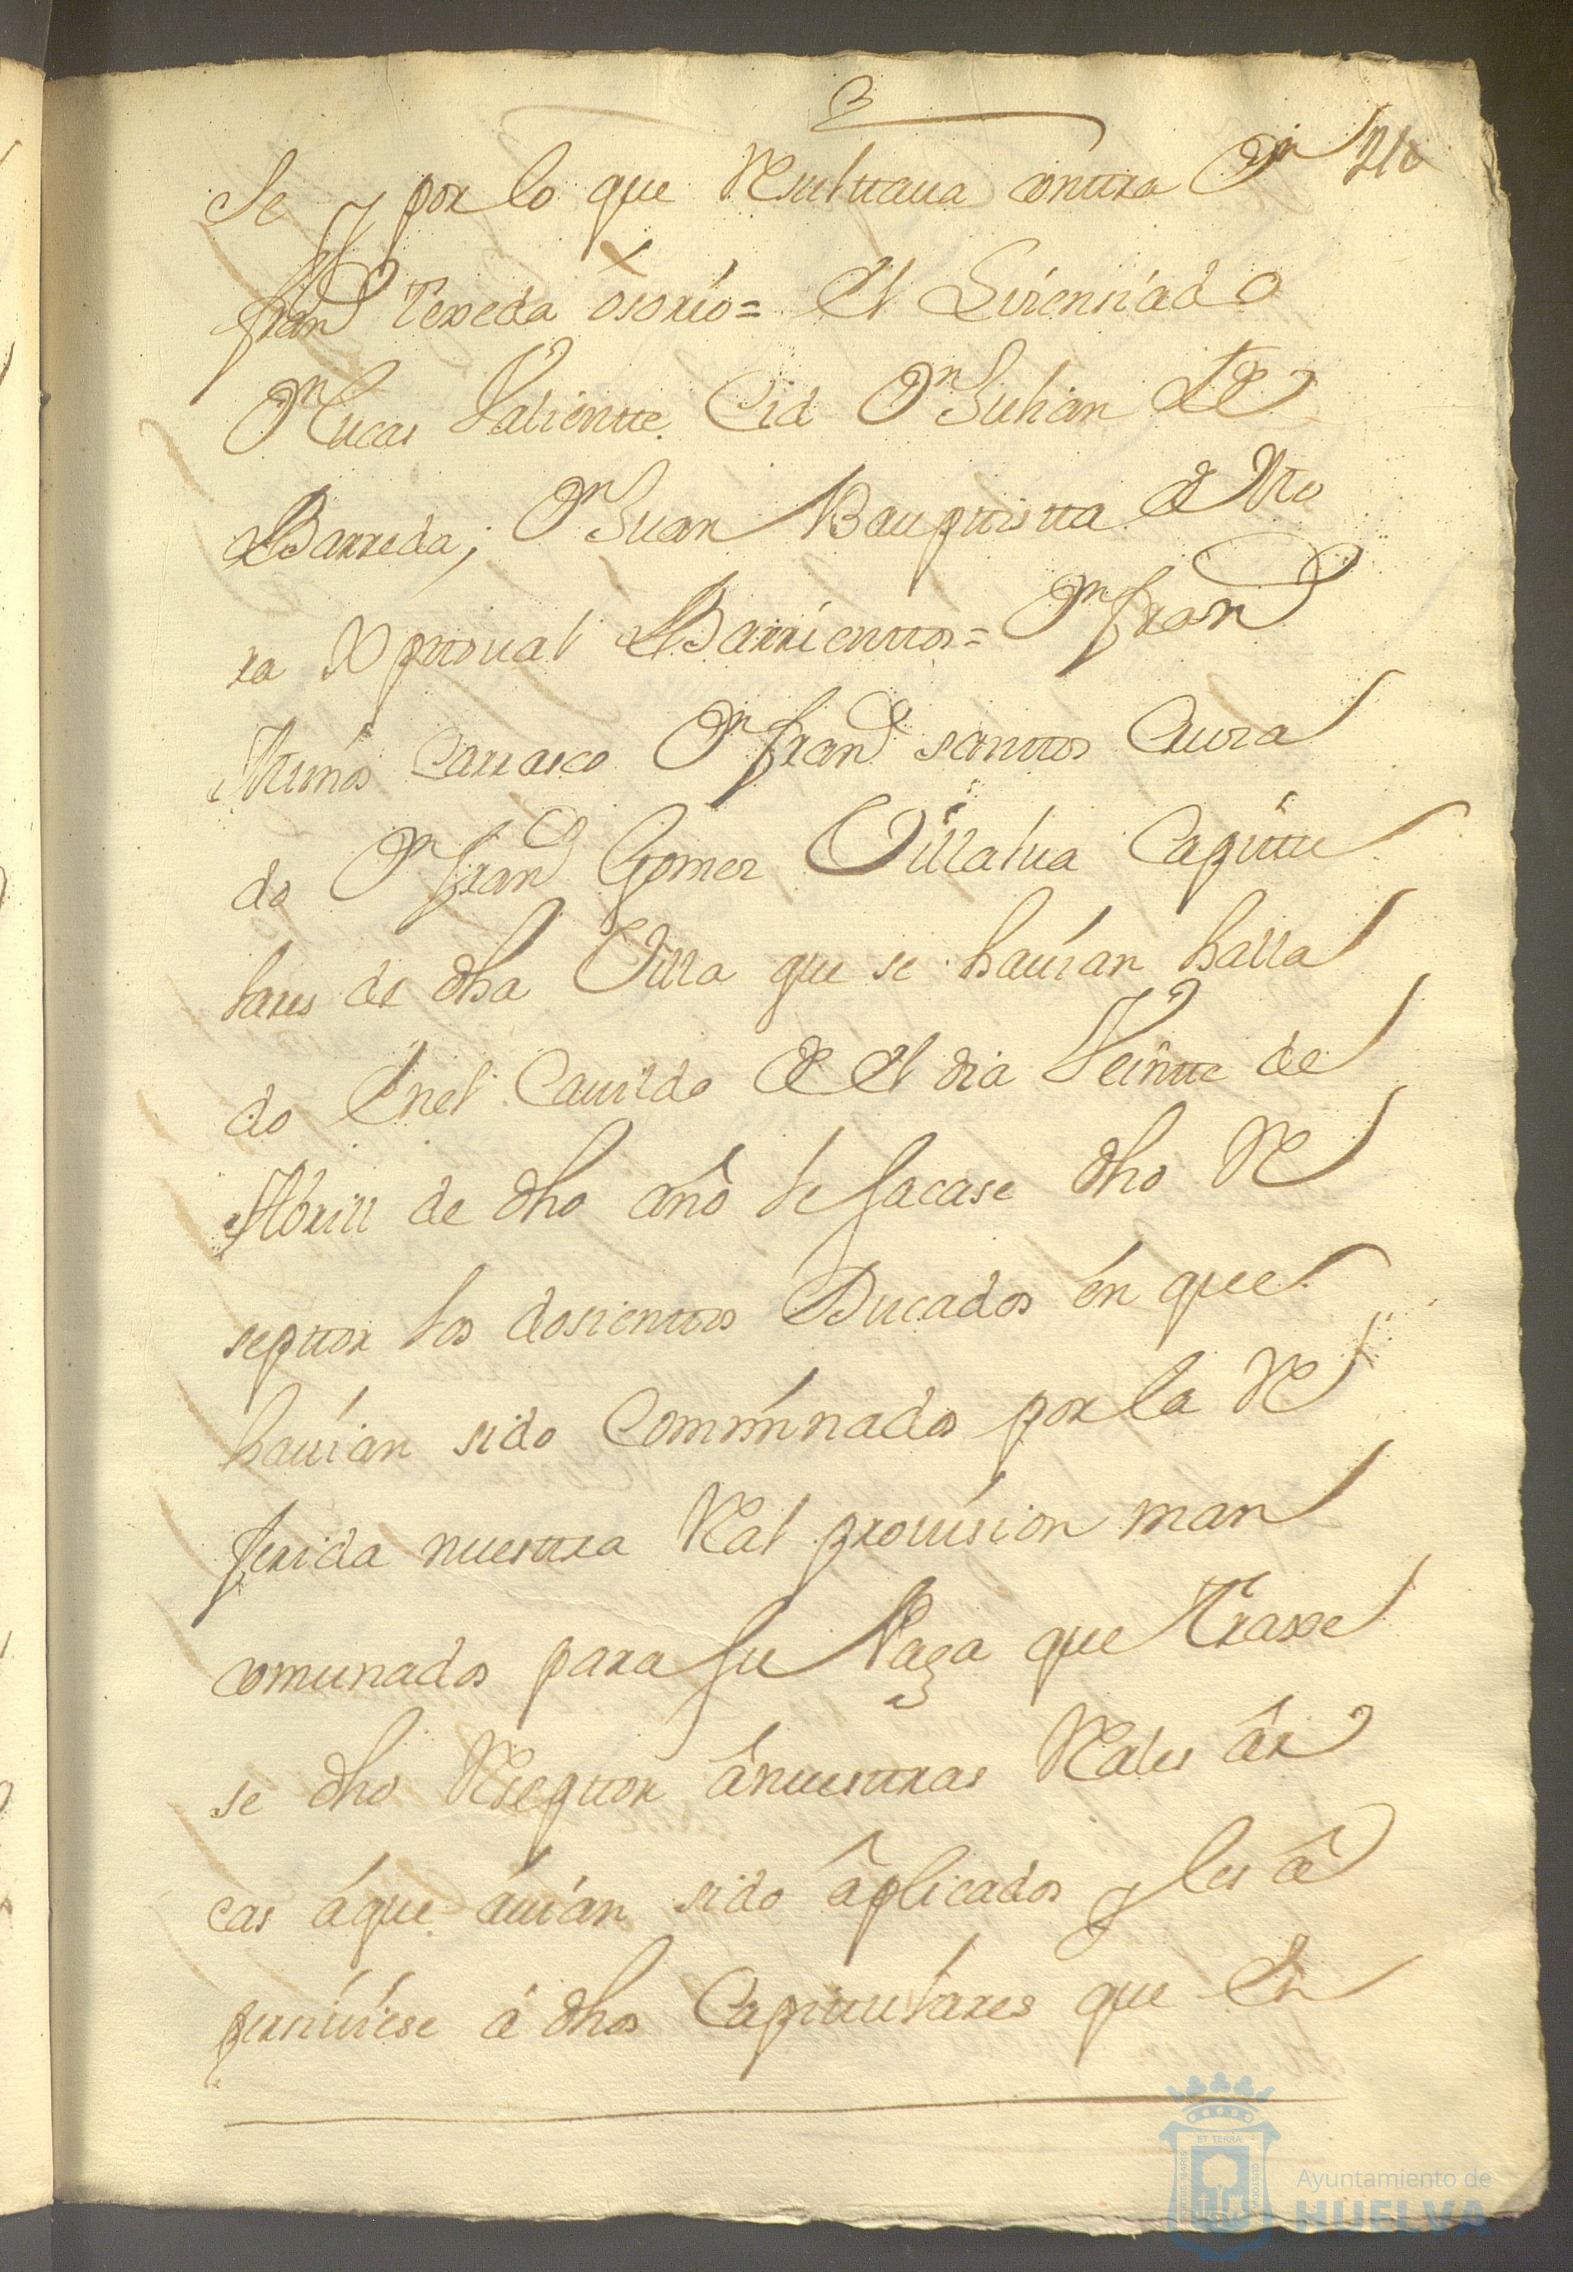 se y por lo que Resultaua contra Dn
franco Texeda osorio = El Lisensiado
Dn Lucas Valiente Cid Dn Julian de
Barreda; Dn Juan Bauptista de Mo
ra Xptoual Barrientos = Dn franco
Muños Carrasco Dn franco santos Cura
do Dn franco Gomez Villalua Capitu
lares de dha Villa que se hauian halla
do Enel Cauildo de El dia Veinte de
Abrill de dho año le sacase dho Re
septor los dosientos Ducados en que
hauian sido Comminados por la Re
ferida nuestra Real prouision man
comunados para su Paga que Traxe
se dho Reseptor a nuestras Reales ar
cas a que auian sido aplicados y les a
perciuiese a dhos Capitulares que En
Ayuntamiento de
HUELVA